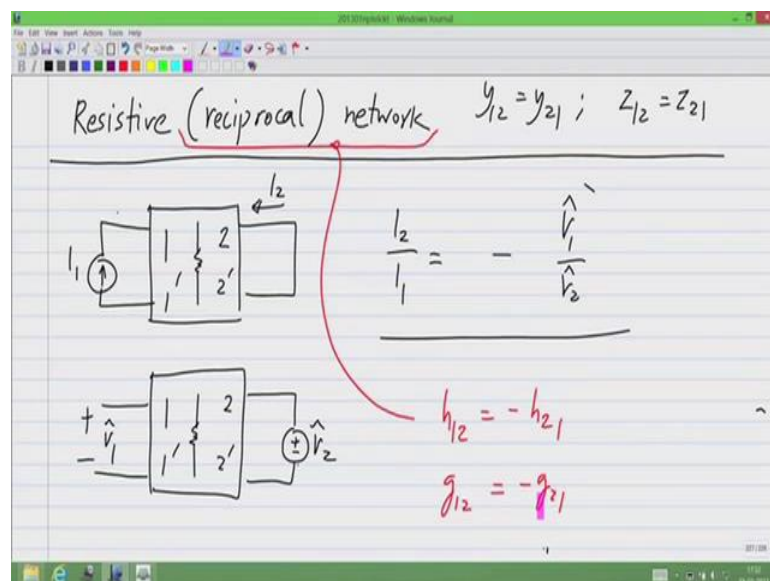 201301nptel(k) - Windows Journal
File Edit View Insert Actions Tools Help
Page Width
B I
Resistive (reciprocal) network y12 = y21 ; z12 = z21
I2
I1
1 2
1' 2'
I2 / I1 = - V̂1 / V̂2
+ V̂1 -
1 2
1' 2'
+ - V̂2
h12 = - h21
g12 = - g21